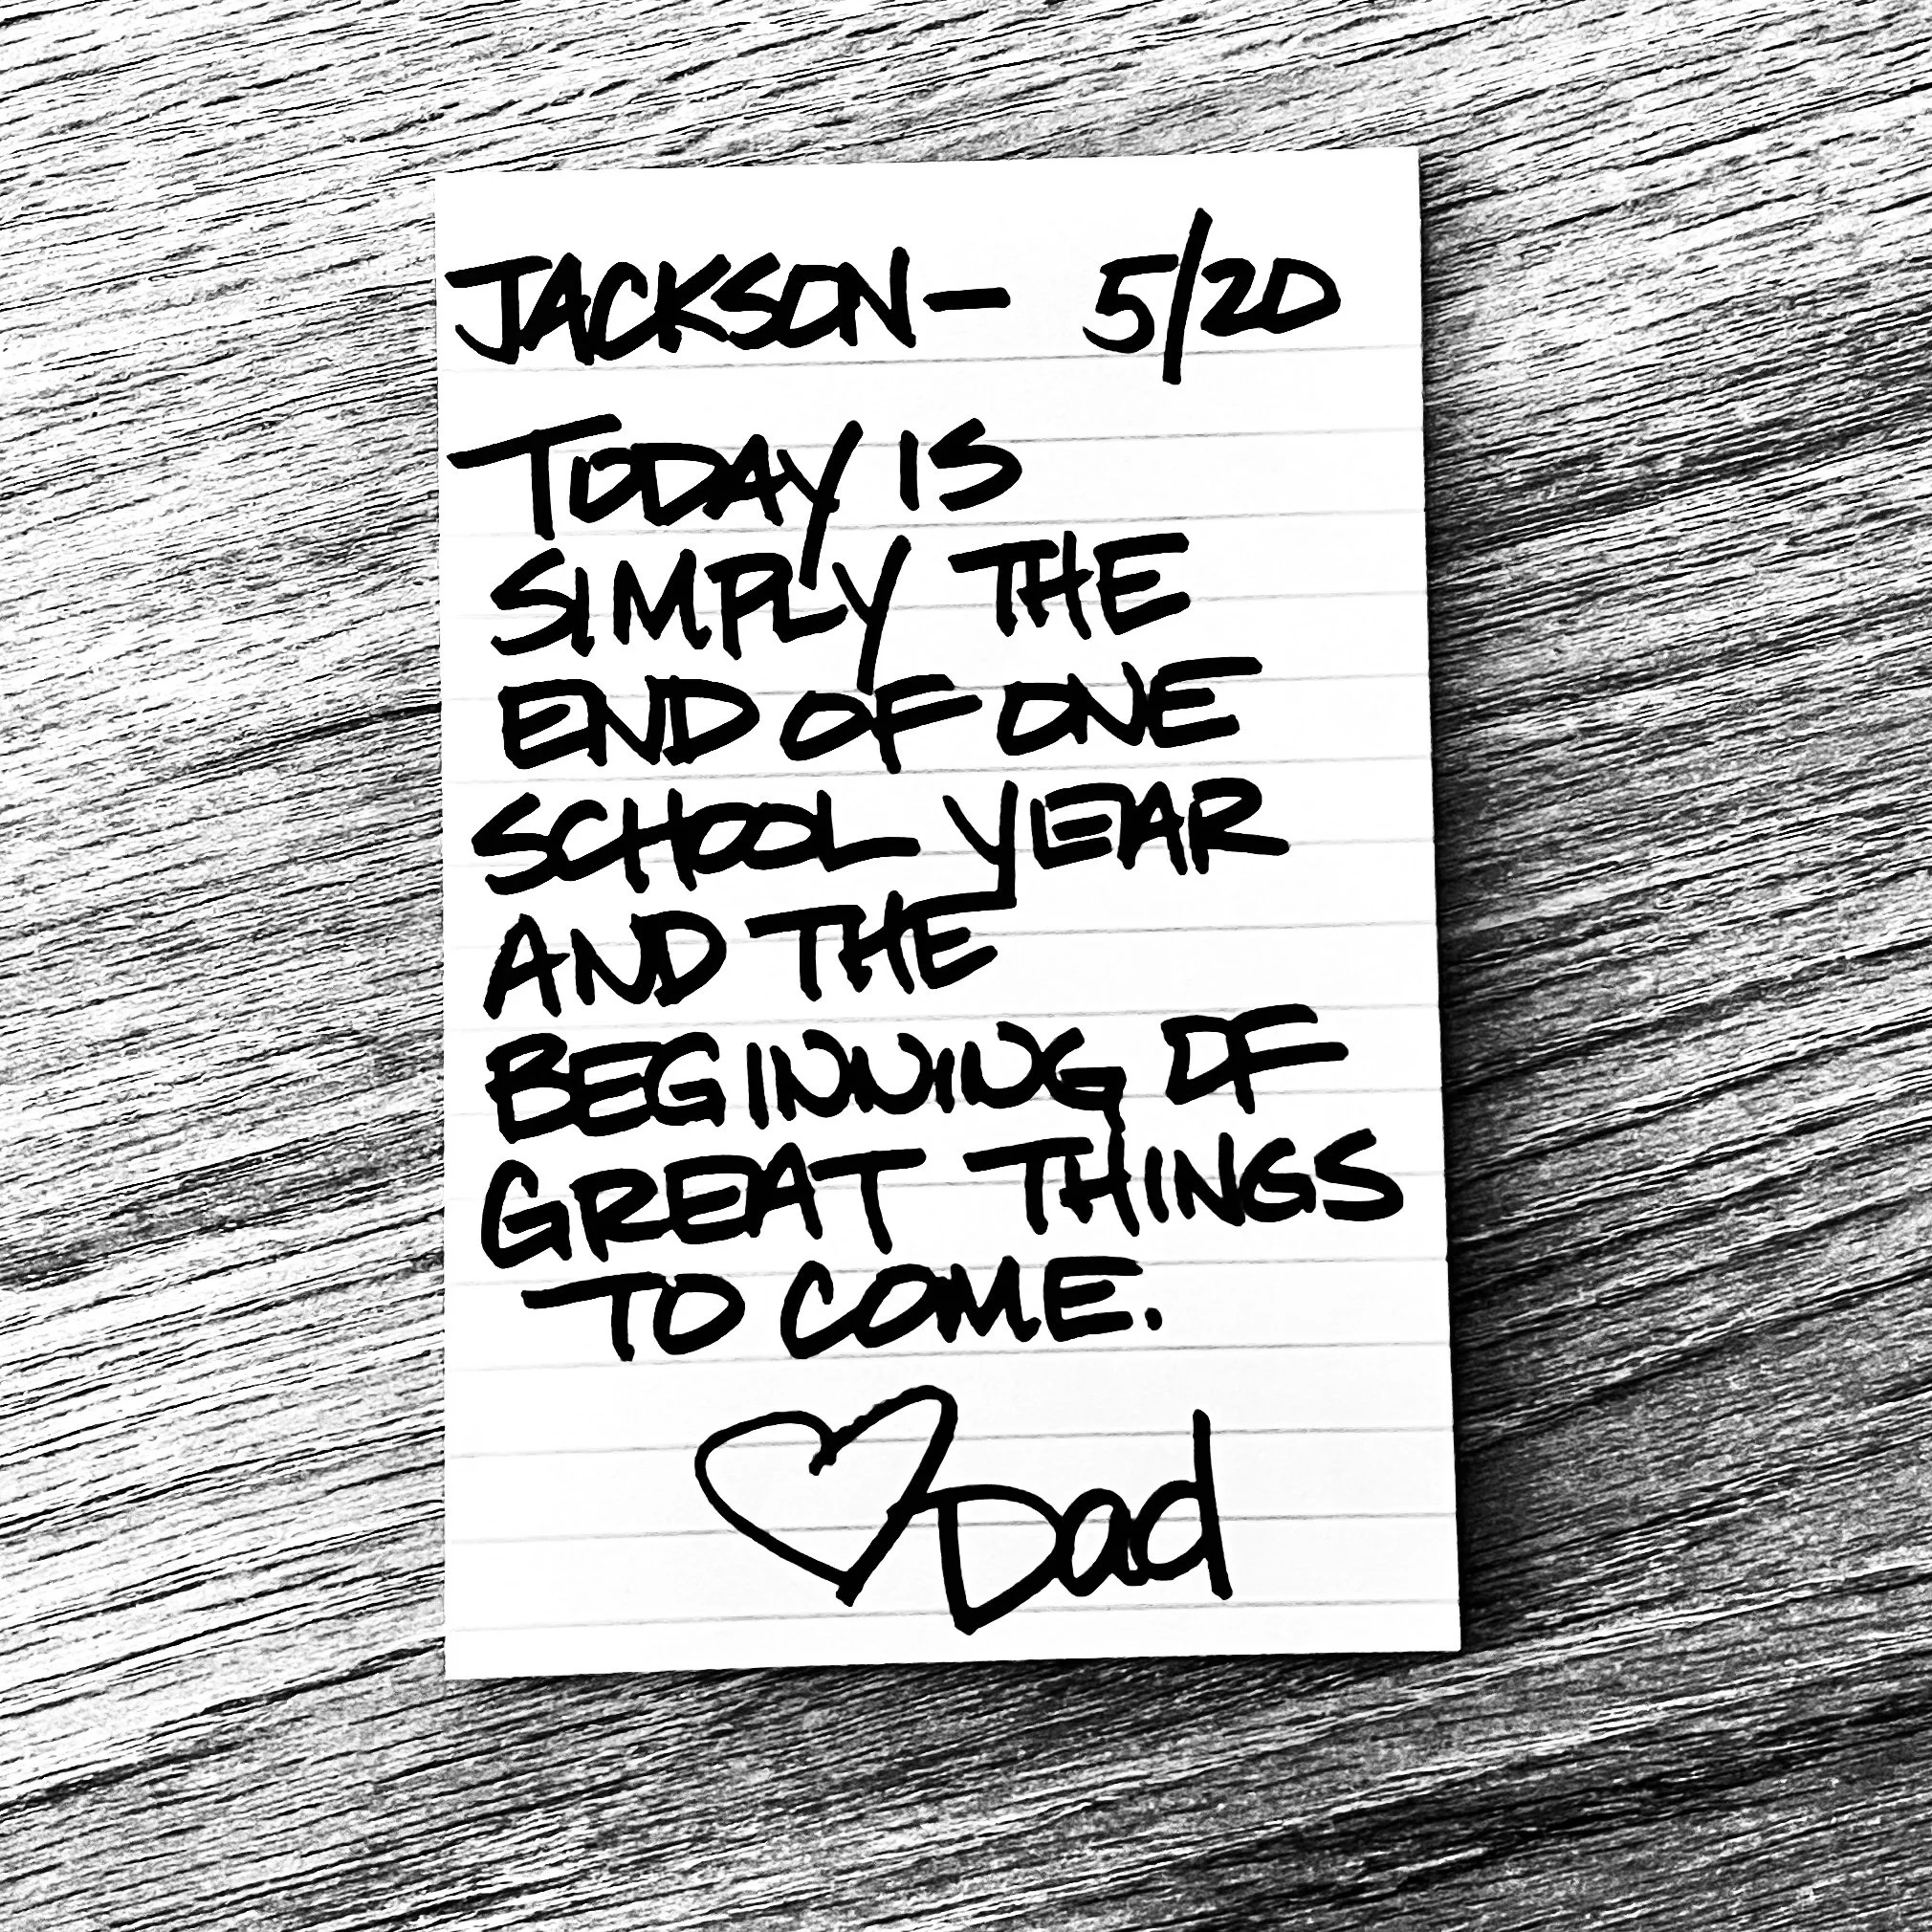 JACKSON— 5/20
TODAY IS
SIMPLY THE
END OF ONE
SCHOOL YEAR
AND THE
BEGINNING OF
GREAT THINGS
TO COME.
♡Dad